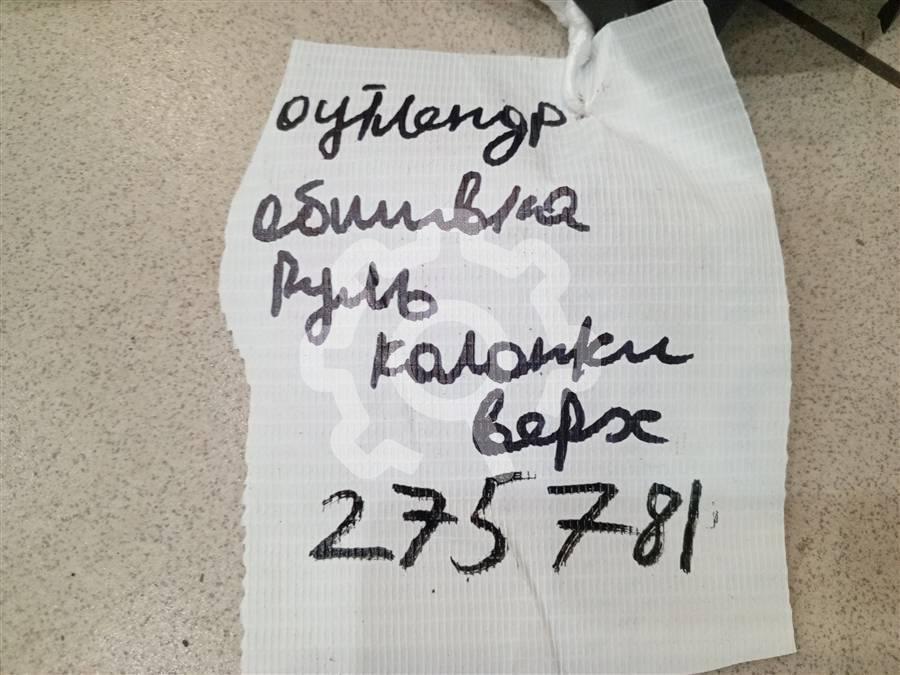 оутлендр
обшивка
Руль
колонки
верх
275781